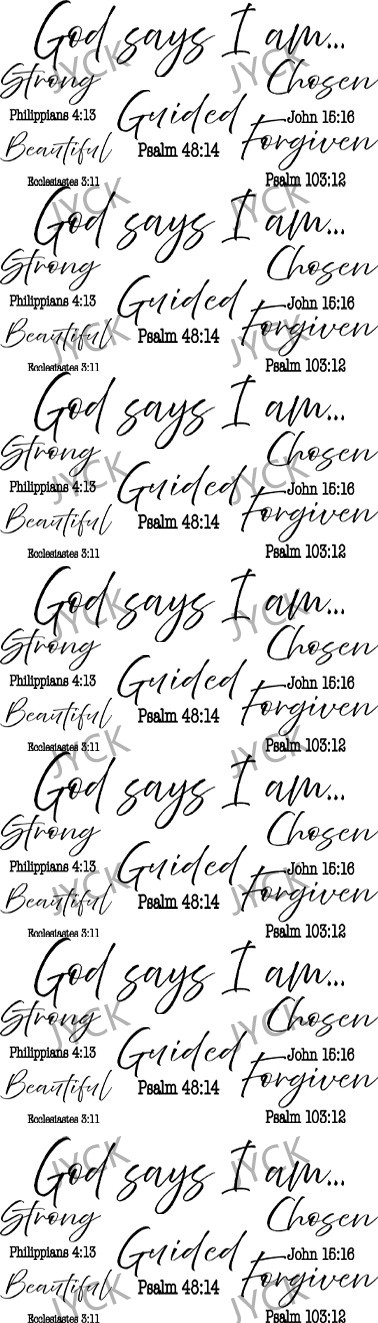 God says I am...
JYCK JYCK
Strong Chosen
Guided
Philippians 4:13 John 15:16
Beautiful Psalm 48:14 Forgiven
Ecclesiastes 3:11 Psalm 103:12
JYCK JYCK
God says I am...
Strong Chosen
Guided
Philippians 4:13 John 15:16
Beautiful Psalm 48:14 Forgiven
JYCK JYCK
Ecclesiastes 3:11 Psalm 103:12
God says I am...
Strong Chosen
JYCK JYCK
Guided
Philippians 4:13 John 15:16
Beautiful Psalm 48:14 Forgiven
Ecclesiastes 3:11 Psalm 103:12
God says I am...
JYCK JYCK
Strong Chosen
Guided
Philippians 4:13 John 15:16
Beautiful Psalm 48:14 Forgiven
Ecclesiastes 3:11 Psalm 103:12
JYCK JYCK
God says I am...
Strong Chosen
Guided
Philippians 4:13 John 15:16
JYCK JYCK
Beautiful Psalm 48:14 Forgiven
Ecclesiastes 3:11 Psalm 103:12
God says I am...
Strong Chosen
JYCK JYCK
Guided
Philippians 4:13 John 15:16
Beautiful Psalm 48:14 Forgiven
Ecclesiastes 3:11 Psalm 103:12
JYCK JYCK
God says I am...
Strong Chosen
Guided
Philippians 4:13 John 15:16
Beautiful Psalm 48:14 Forgiven
JYCK JYCK
Ecclesiastes 3:11 Psalm 103:12